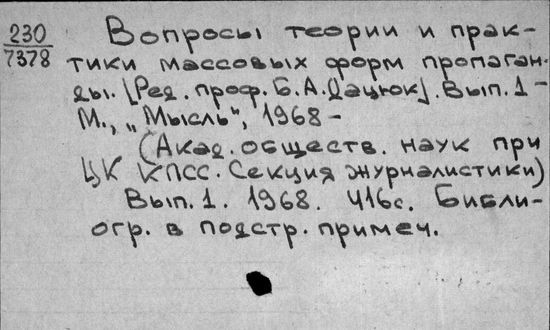 230
7378
Вопросы теории и прак-
тики массовых форм пропаган-
ды. [Ред. проф. Б. А. Дацюк]. Вып. 1 -
М., „Мысль", 1968 -
(Акад. обществ. наук при
ЦК КПСС. Секция журналистики)
Вып. 1. 1968. 416с. Библи-
огр. в подстр. примеч.